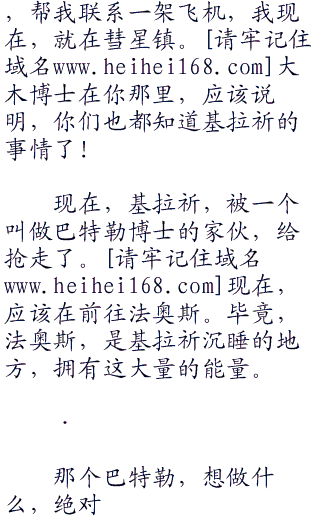 ，帮我联系一架飞机，我现
在，就在彗星镇。[请牢记住
域名www.heihei168.com]大
木博士在你那里，应该说
明，你们也都知道基拉祈的
事情了！
现在，基拉祈，被一个
叫做巴特勒博士的家伙，给
抢走了。[请牢记住域名
www.heihei168.com]现在，
应该在前往法奥斯。毕竟，
法奥斯，是基拉祈沉睡的地
方，拥有这大量的能量。
.
那个巴特勒，想做什
么，绝对